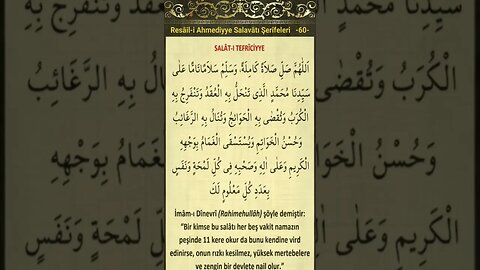 Resâil-i Ahmediyye Salavâtı Şerifeleri -60-
SALÂT-I TEFRÎCİYYE
اَللّٰهُمَّ صَلِّ صَلَاةً كَامِلَةً، وَسَلِّمْ سَلَامًا تَامًّا عَلٰى
سَيِّدِنَا مُحَمَّدٍ الَّذِى تَنْحَلُّ بِهِ الْعُقَدُ وَتَنْفَرِجُ بِهِ
الْكُرَبُ وَتُقْضٰى بِهِ الْحَوَائِجُ وَتُنَالُ بِهِ الرَّغَائِبُ
وَحُسْنُ الْخَوَاتِمِ وَيُسْتَسْقَى الْغَمَامُ بِوَجْهِهِ
الْكَرِيمِ وَعَلٰى اٰلِهِ وَصَحْبِهِ فِى كُلِّ لَمْحَةٍ وَنَفَسٍ
بِعَدَدِ كُلِّ مَعْلُومٍ لَكَ
İmâm-ı Dîneverî (Rahimehullâh) şöyle demiştir:
"Bir kimse bu salâtı her beş vakit namazın
peşinde 11 kere okur da bunu kendine vird
edinirse, onun rızkı kesilmez, yüksek mertebelere
ve zengin bir devlete nail olur."